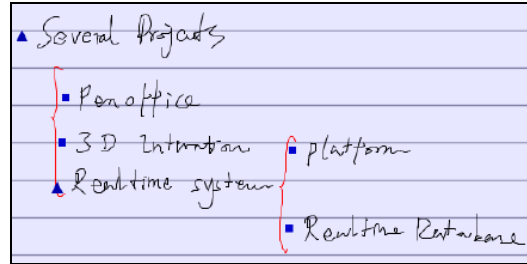 Several Projects
Penoffice
3D Interation
Realtime system
platform
Realtime Database